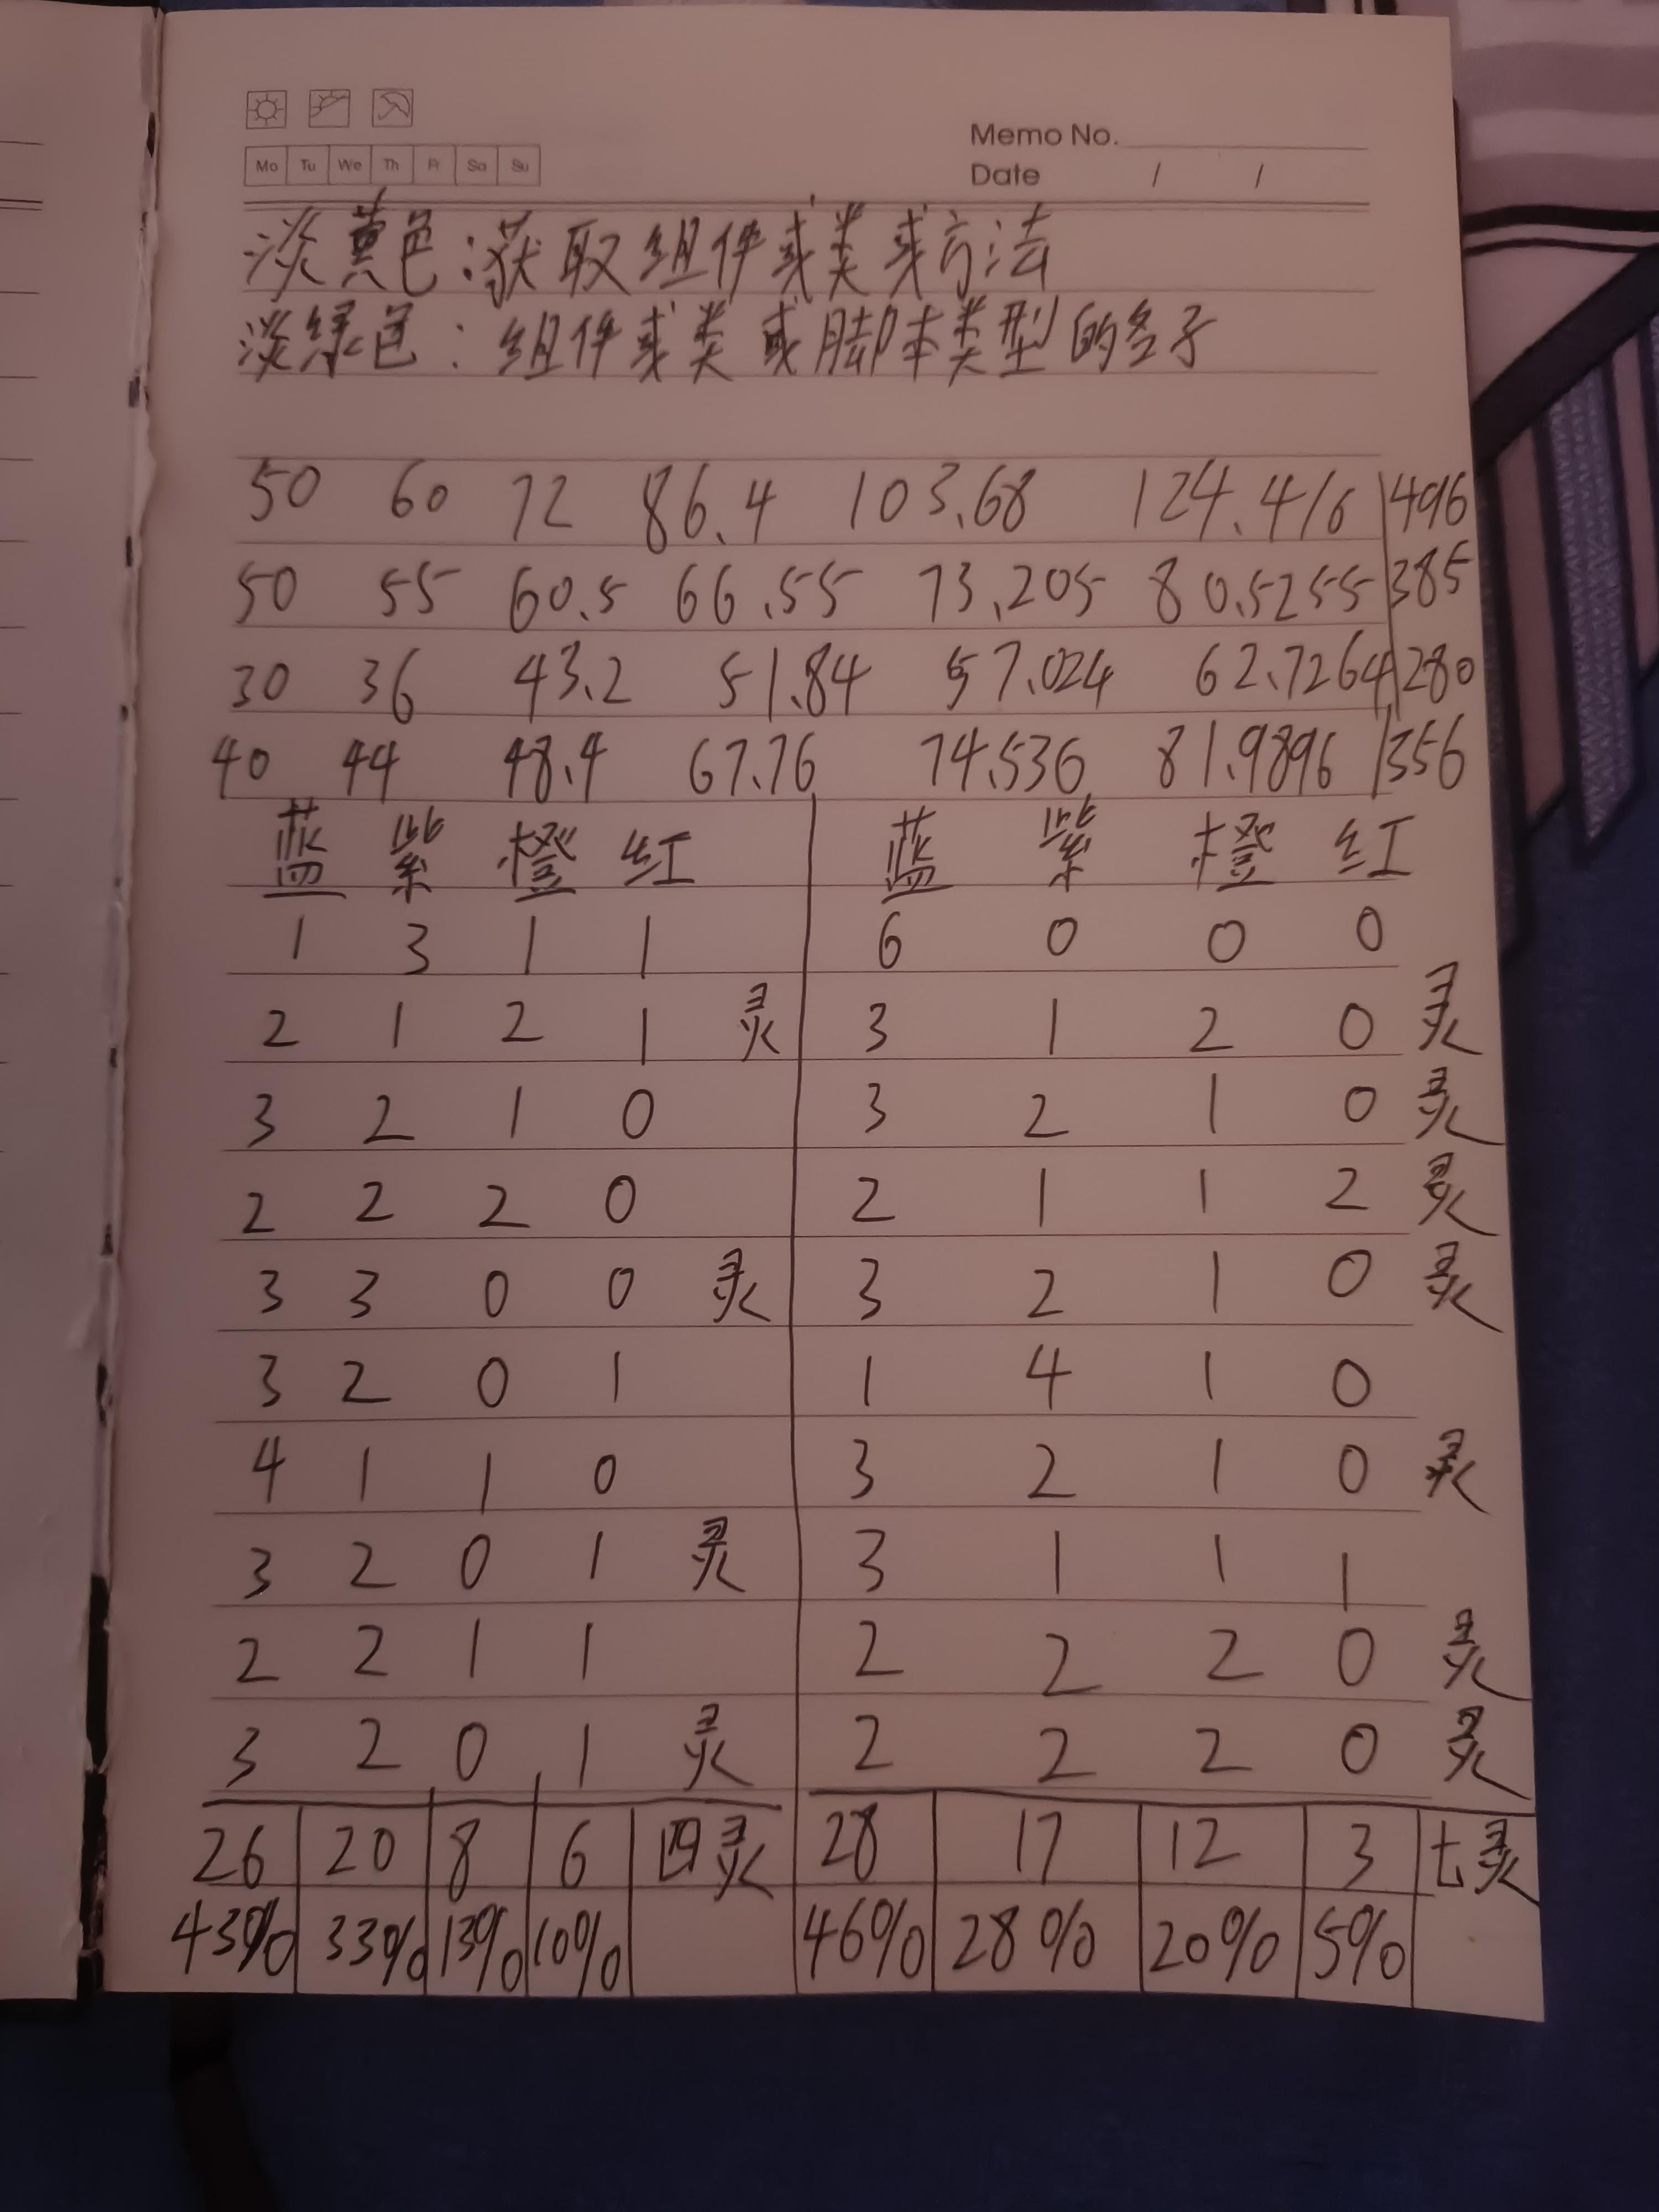 Memo No.
Mo Tu We Th Fr Sa Su
Date / /
淡黄色:获取组件或类或方法
淡绿色:组件或类或脚本类型的名子
50 60 72 86.4 103.68 124.416 496
50 55 60.5 66.55 73.205 80.5255 385
30 36 43.2 51.84 57.024 62.7264 280
40 44 48.4 67.76 74.536 81.9896 356
蓝 紫 橙 红 蓝 紫 橙 红
1 3 1 1 6 0 0 0
2 1 2 1 灵 3 1 2 0 灵
3 2 1 0 3 2 1 0 灵
2 2 2 0 2 1 1 2 灵
3 3 0 0 灵 3 2 1 0 灵
3 2 0 1 1 4 1 0
4 1 1 0 3 2 1 0 灵
3 2 0 1 灵 3 1 1 1
2 2 1 1 2 2 2 0 灵
3 2 0 1 灵 2 2 2 0 灵
26 20 8 6 四灵 28 17 12 3 七灵
43% 33% 13% 10% 46% 28% 20% 5%